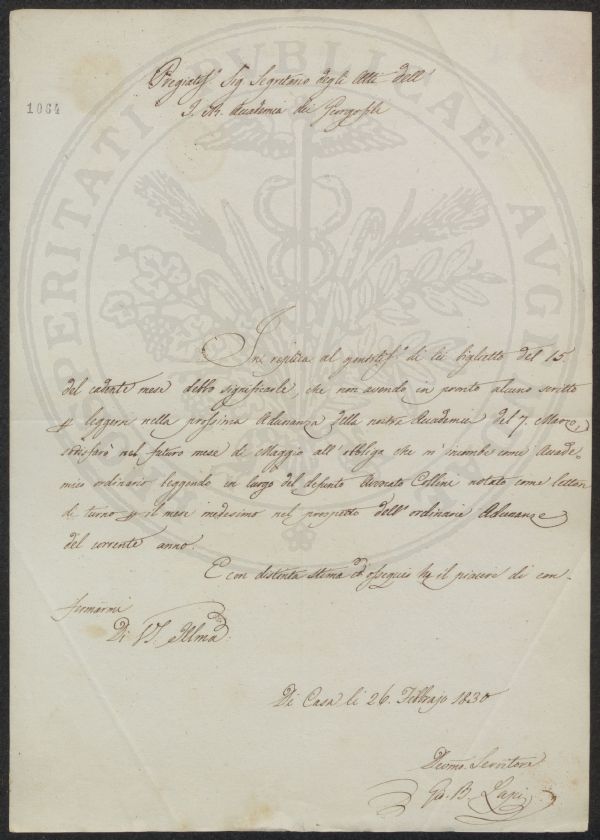 Pregiatiss.º Sig. Segretario degli Atti dell'
1064
I. R. Accademia dei Georgofili
In replica al gentiliss.º di lei biglietto del 15
del cadente mese debbo significarle, che non avendo in pronto alcuno scritto
p leggere nella prossima Adunanza della nostra Accademia del 7. Marzo,
sodisfarò nel futuro mese di Maggio all'obbligo che m'incombe come Accade-
mico ordinario leggendo in luogo del defunto Avvocato Collini notato come lettore
di turno p il mese medesimo nel prospetto dell'ordinarie Adunanze
del corrente anno.
E con distinta stima ed ossequio ho il piacere di con-
fermarmi
Di VS. Illma
Di Casa li 26. Febbrajo 1830
Devmo. Servitore
Gio. B. Lapi
PROSPERITATI PVBLICAE AVGENDAE